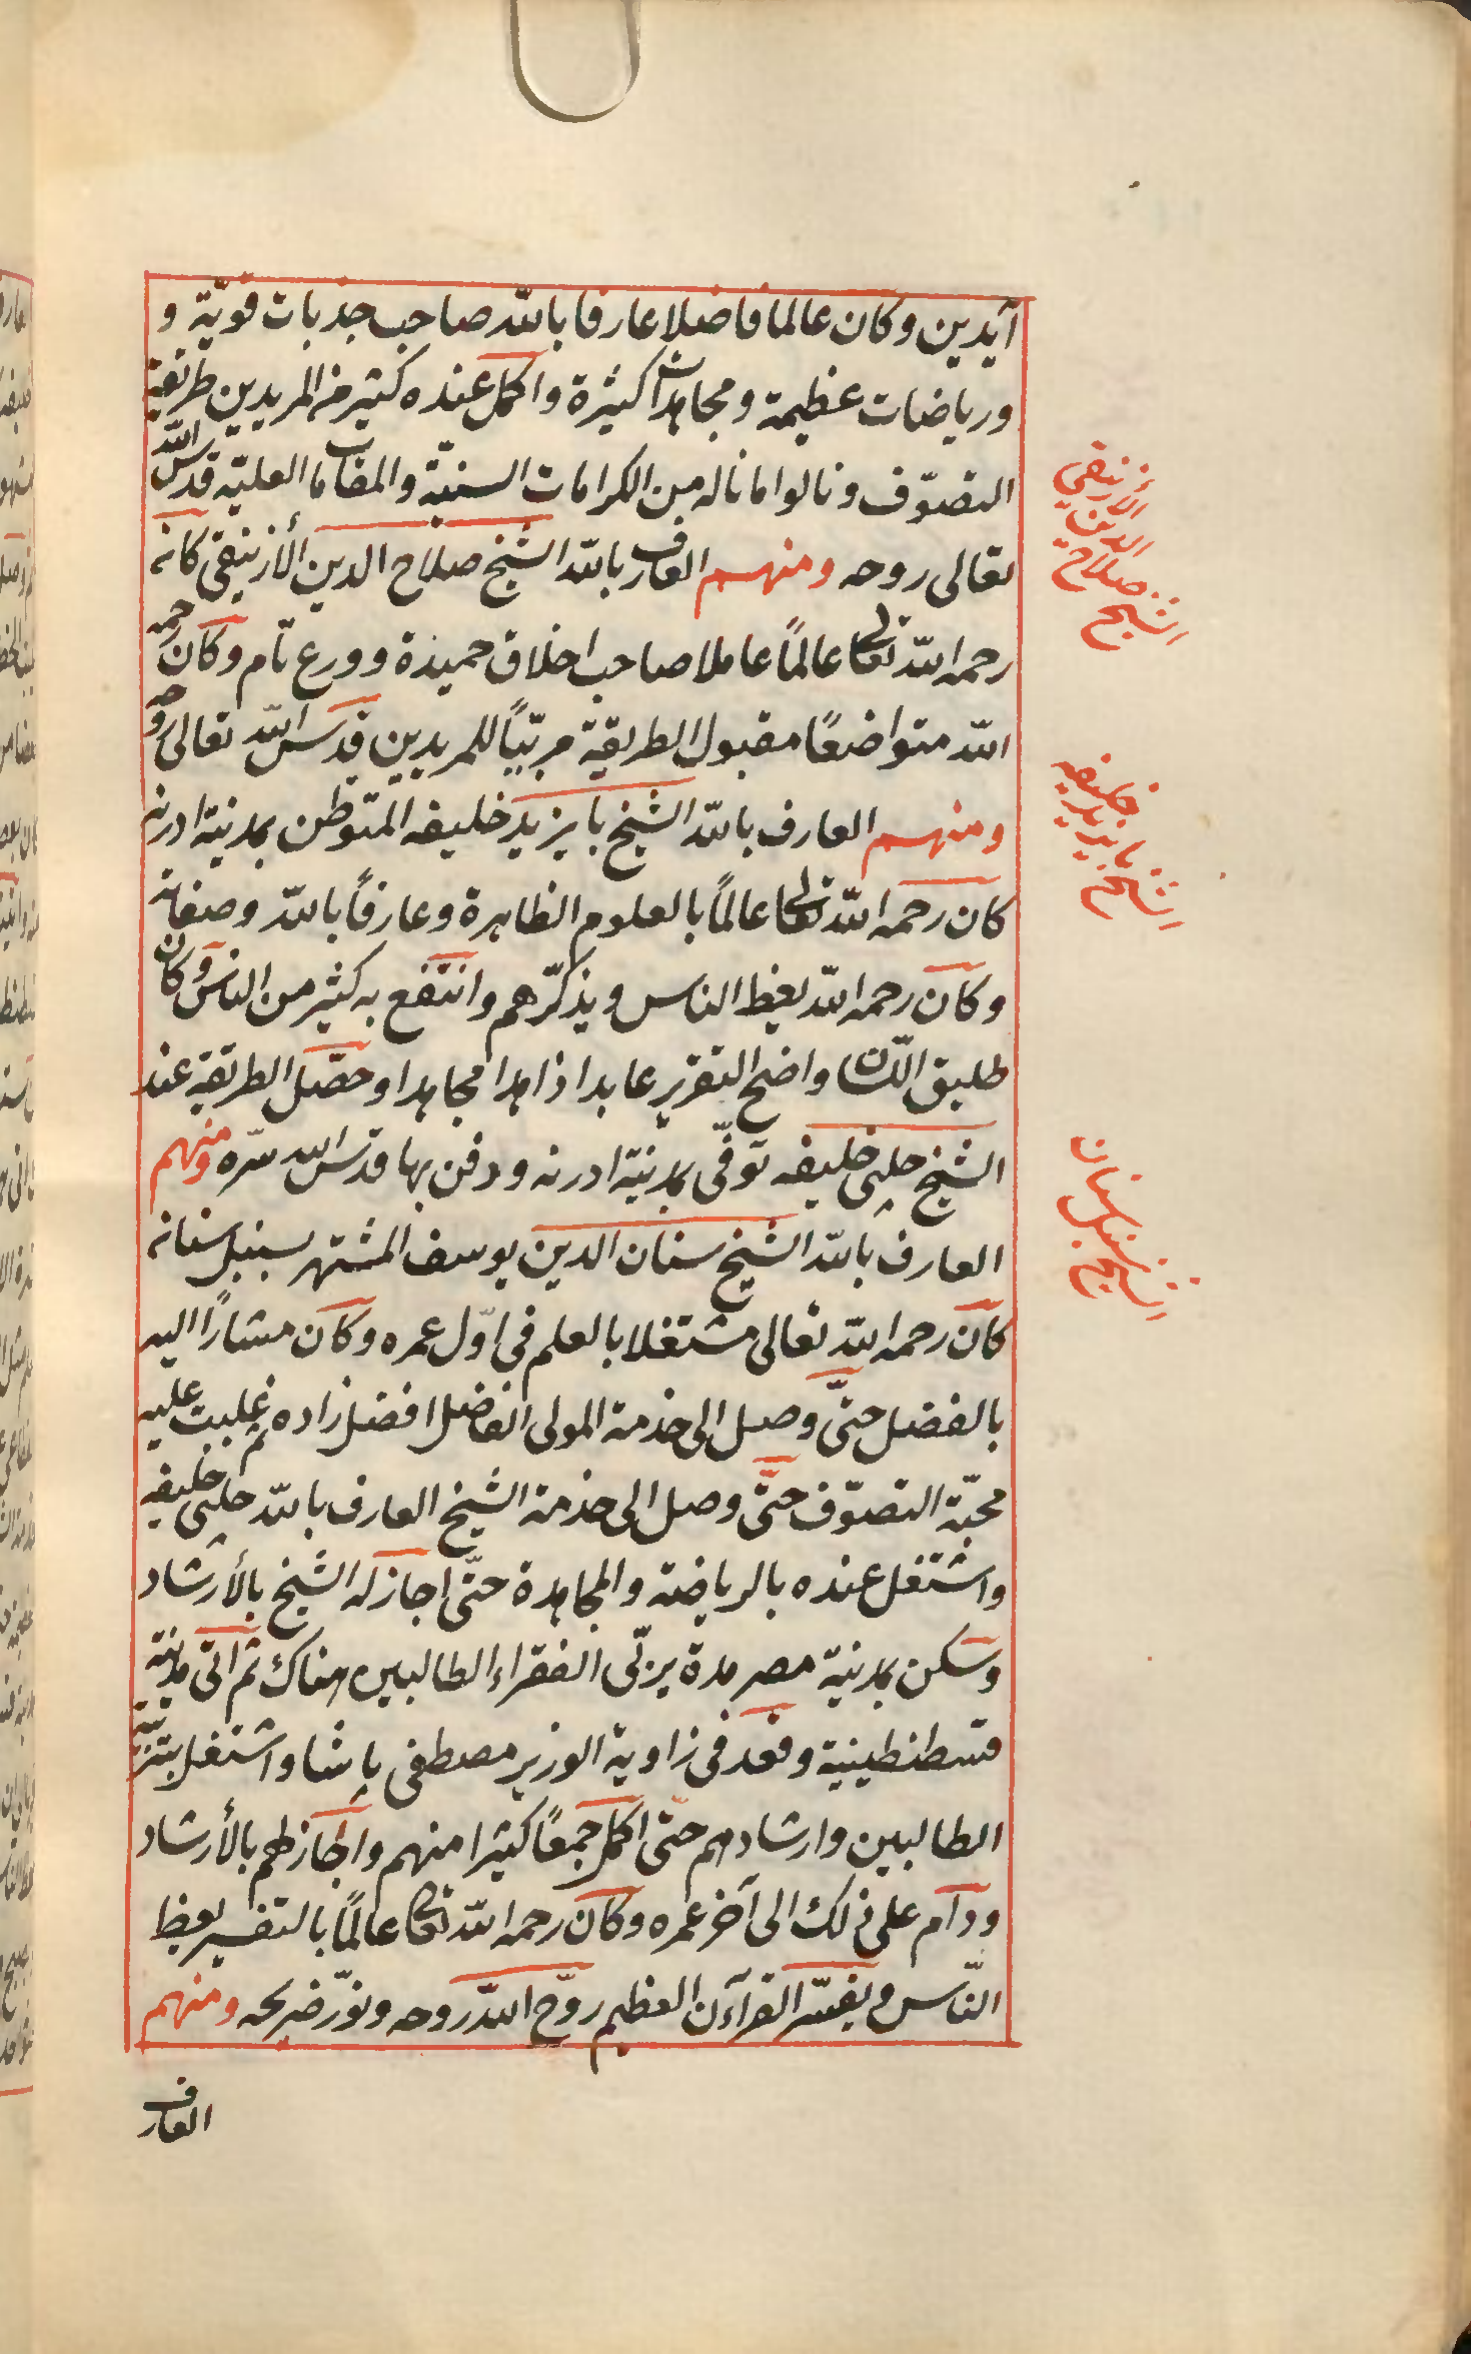 آيدين وكان عالما فاضلا عارفا بالله صاحب جذبات قويّة و
ورياضات عظيمة ومجاهدات كثيرة واكمل عنده كثير من المريدين طريقة
التصوّف ونالوا ما ناله من الكرامات السنيّة والمقاما العليّه قدس الله
تعالى روحه ومنهم العارف بالله الشيخ صلاح الدين الأزنيقى كان
رحمه الله تعالى عالمًا عاملا صاحب اخلاق حميدة وورع تام وكان رحمه
الله متواضعًا مقبول الطريقة مربّيًا للمريدين قدس الله تعالى روحه
ومنهم العارف بالله الشيخ بايزيد خليفه المتوطن بمدينة ادرنه
كان رحمه الله تعالى عالمًا بالعلوم الظاهرة وعارفًا بالله وصفاته
وكان رحمه الله يعظ الناس ويذكّرهم وانتفع به كثير من الناس وكان
طليق اللسان واضح التقرير عابدا زاهدا مجاهدا وحصّل الطريقة عند
الشيخ چلبى خليفه توفّى بمدينة ادرنه ودفن بها قدس الله سرّه ومنهم
العارف بالله الشيخ سنان الدين يوسف المشتهر بسنبل سنان
كان رحمه الله تعالى مشتغلا بالعلم فى اوّل عمره وكان مشارًا اليه
بالفضل حتّى وصل الى خدمة المولى الفاضل افضل زاده ثم غلبت عليه
محبّة التصوّف حتّى وصل الى خدمة الشيخ العارف بالله چلبى خليفه
واشتغل عنده بالرياضة والمجاهدة حتّى اجازله الشيخ بالأرشاد
وسكن بمدينة مصر مدة يربّى الفقراء الطالبين هناك ثم اتى مدينة
قسطنطينية وقعد فى زاوية الوزير مصطفى پاشا واشتغل بتربية
الطالبين وارشادهم حتّى اكمل جمعًا كثيرا منهم واجاز لهم بالأرشاد
ودام على ذلك الى آخر عمره وكان رحمه الله تعالى عالمًا بالتفسير يعظ
النّاس ويفسّر القرآن العظيم روّح الله روحه ونوّر ضريحه ومنهم
العارف
الشيخ صلاح الدين الأزنيقي
الشيخ بايزيد خليفه
الشيخ سنبل سنان